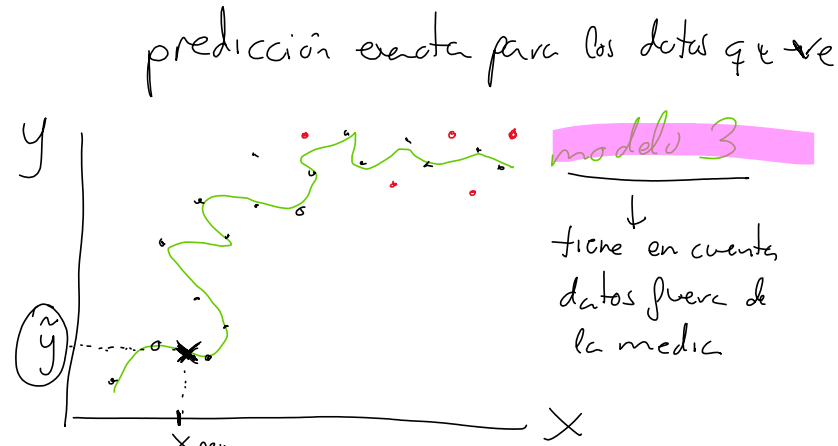 predicción exacta para los datos que ve
y
modelo 3
tiene en cuenta
datos fuera de
la media
ỹ
X